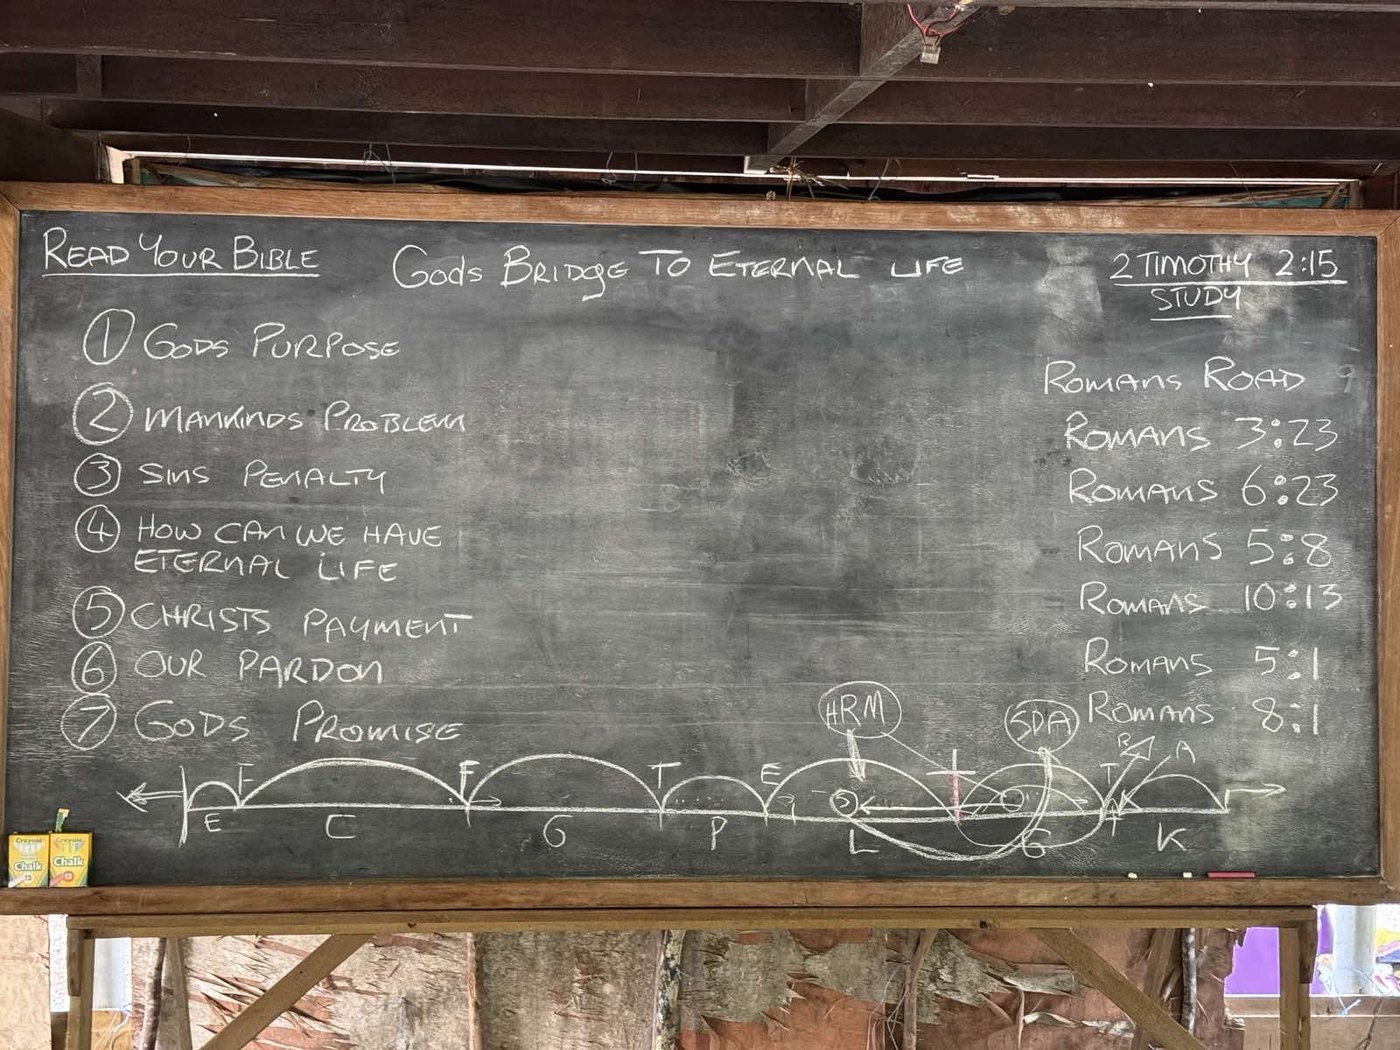 READ YOUR BIBLE
Gods BRIDGE TO ETERNAL LIFE
2 TIMOTHY 2:15
STUDY
1 GODS PURPOSE
2 MANKINDS PROBLEM
3 SINS PENALTY
4 HOW CAN WE HAVE
ETERNAL LIFE
5 CHRISTS PAYMENT
6 OUR PARDON
7 GODS PROMISE
ROMANS ROAD
ROMANS 3:23
ROMANS 6:23
ROMANS 5:8
ROMANS 10:13
ROMANS 5:1
ROMANS 8:1
HRM
SDA
R A
F F T E T
E C G P L G K
Crayola Crayola
Chalk Chalk